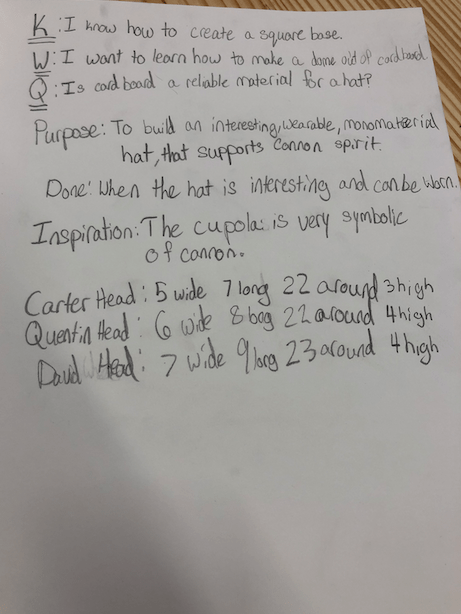 K: I know how to create a square base.
W: I want to learn how to make a dome out of cardboard
Q: Is cardboard a reliable material for a hat?
Purpose: To build an interesting, wearable, monomaterial
hat, that supports Cannon spirit.
Done: When the hat is interesting and can be worn.
Inspiration: The cupola: is very symbolic
of cannon.
Carter Head: 5 wide 7 long 22 around 3 high
Quentin Head: 6 wide 8 long 22 around 4 high
David Head: 7 wide 9 long 23 around 4 high